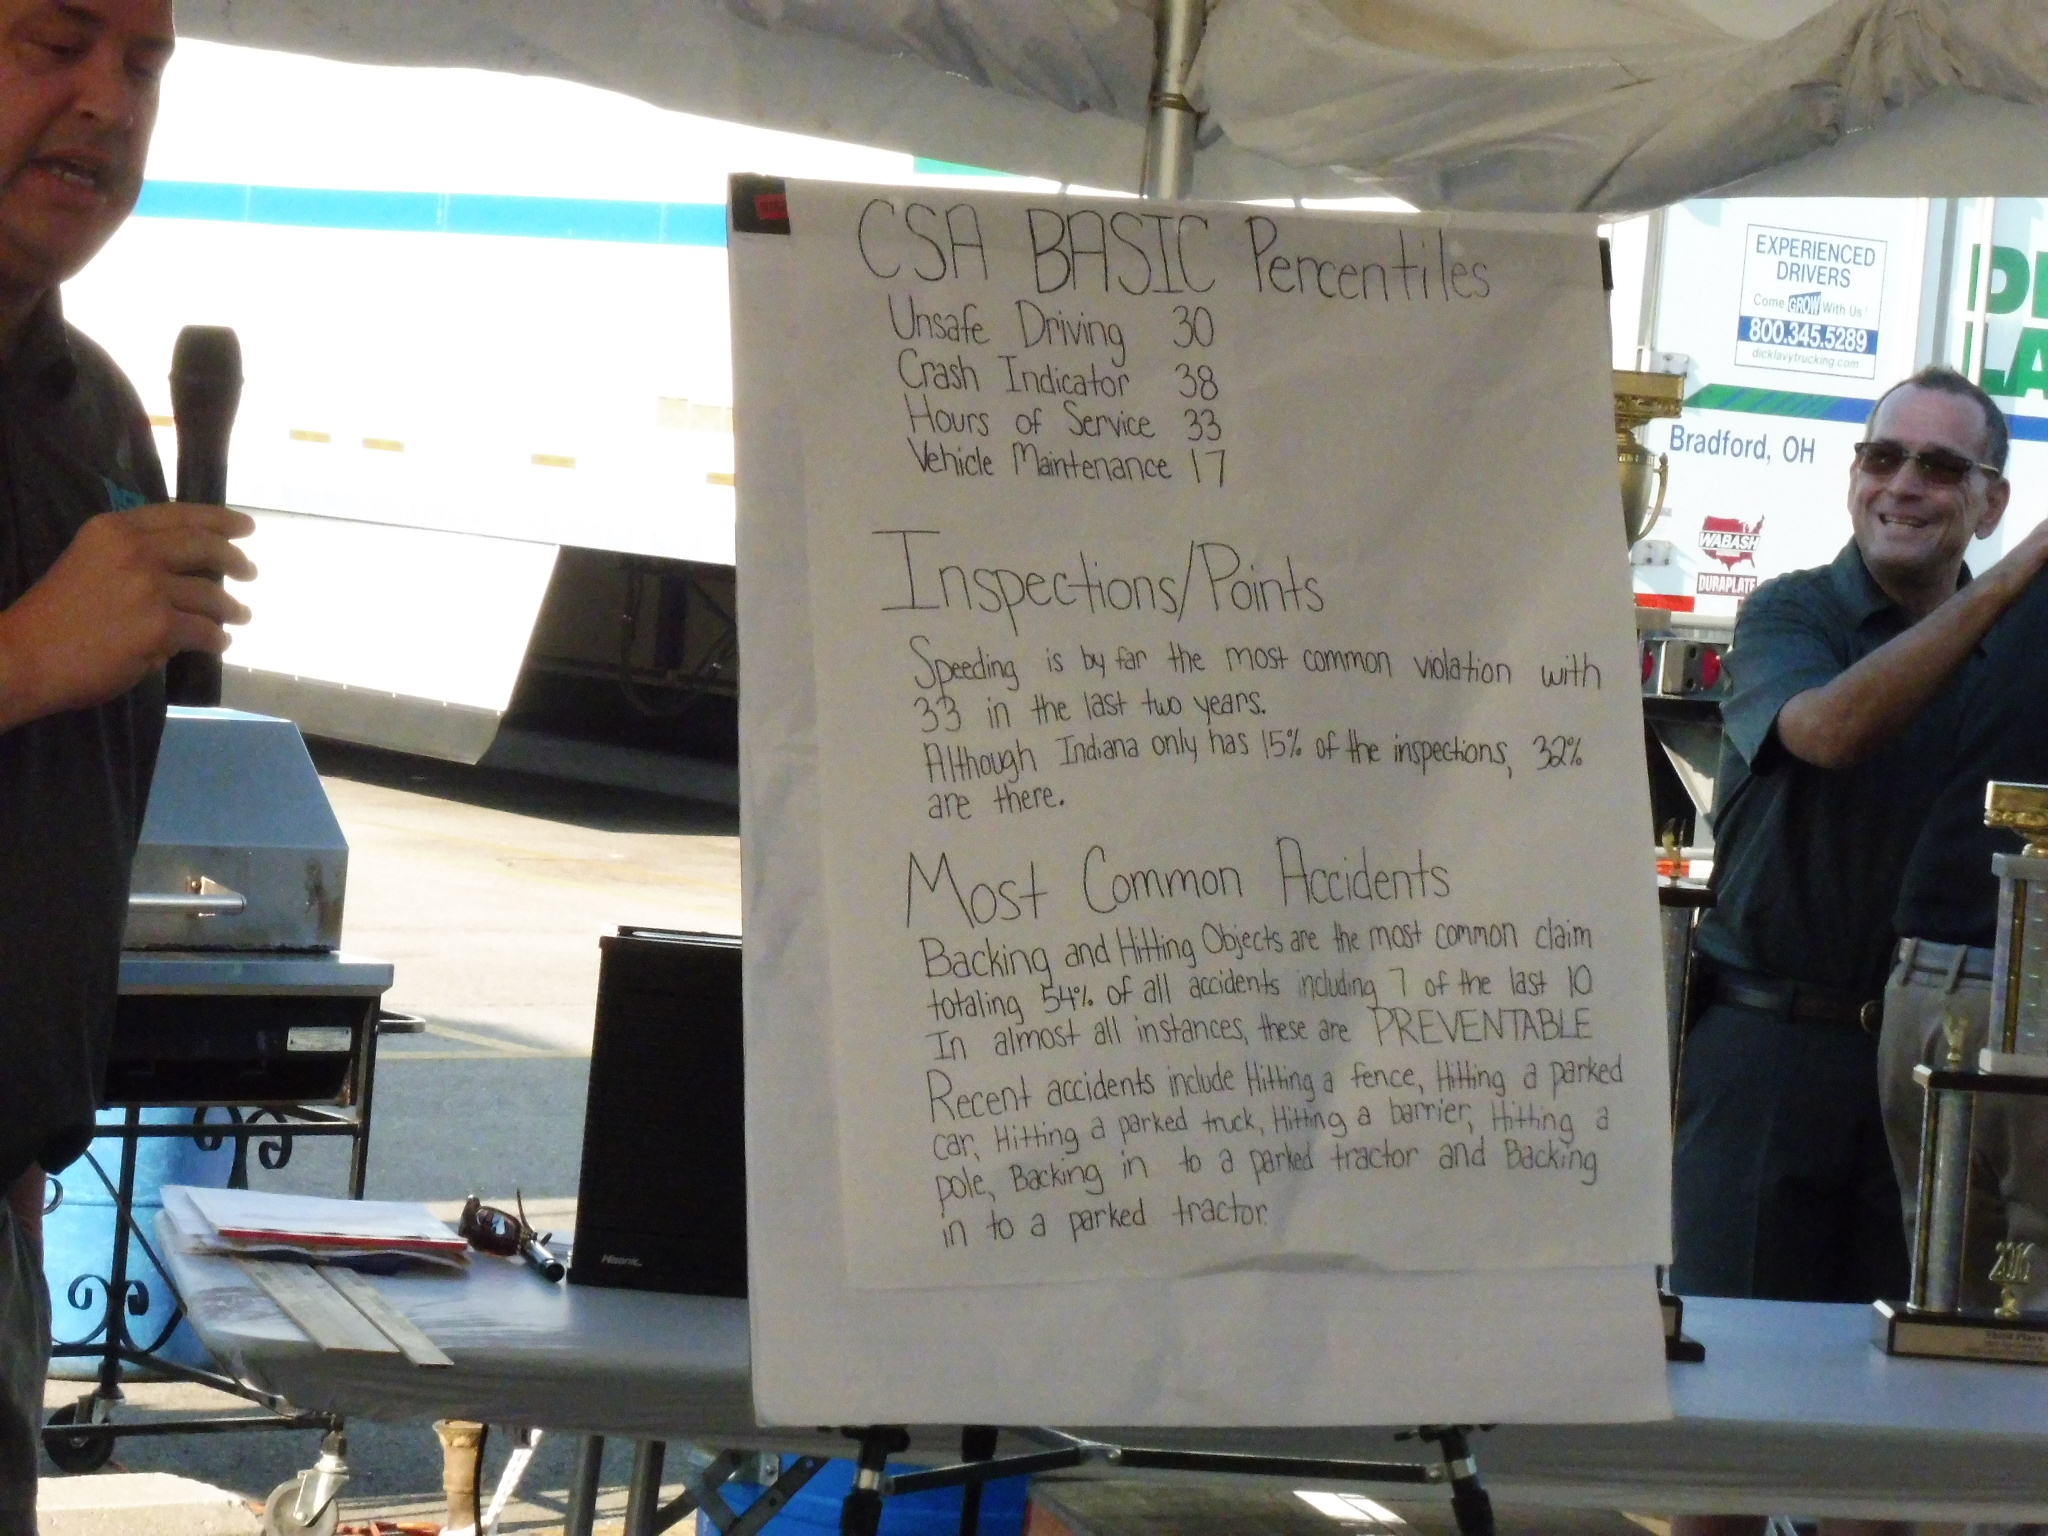 CSA BASIC Percentiles
Unsafe Driving 30
Crash Indicator 38
Hours of Service 33
Vehicle Maintenance 17
Inspections/Points
Speeding is by far the most common violation with
33 in the last two years.
Although Indiana only has 15% of the inspections, 32%
are there.
Most Common Accidents
Backing and Hitting Objects are the most common claim
totaling 54% of all accidents including 7 of the last 10
In almost all instances, these are PREVENTABLE
Recent accidents include Hitting a fence, Hitting a parked
car, Hitting a parked truck, Hitting a barrier, Hitting a
pole, Backing in to a parked tractor and Backing
in to a parked tractor.
EXPERIENCED
DRIVERS
Come GROW With Us!
800.345.5289
dicklavytrucking.com
Bradford, OH
WABASH
DURAPLATE
Hisonic
2016
Third Place